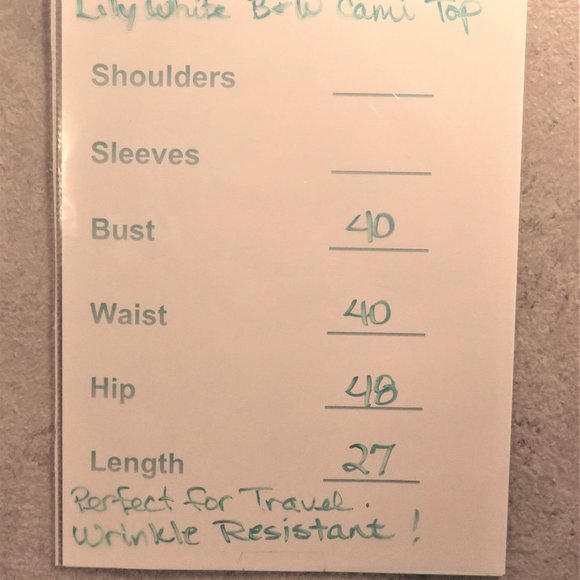 Lily White B+W Cami Top
Shoulders
Sleeves
Bust 40
Waist 40
Hip 48
Length 27
Perfect for Travel.
Wrinkle Resistant!